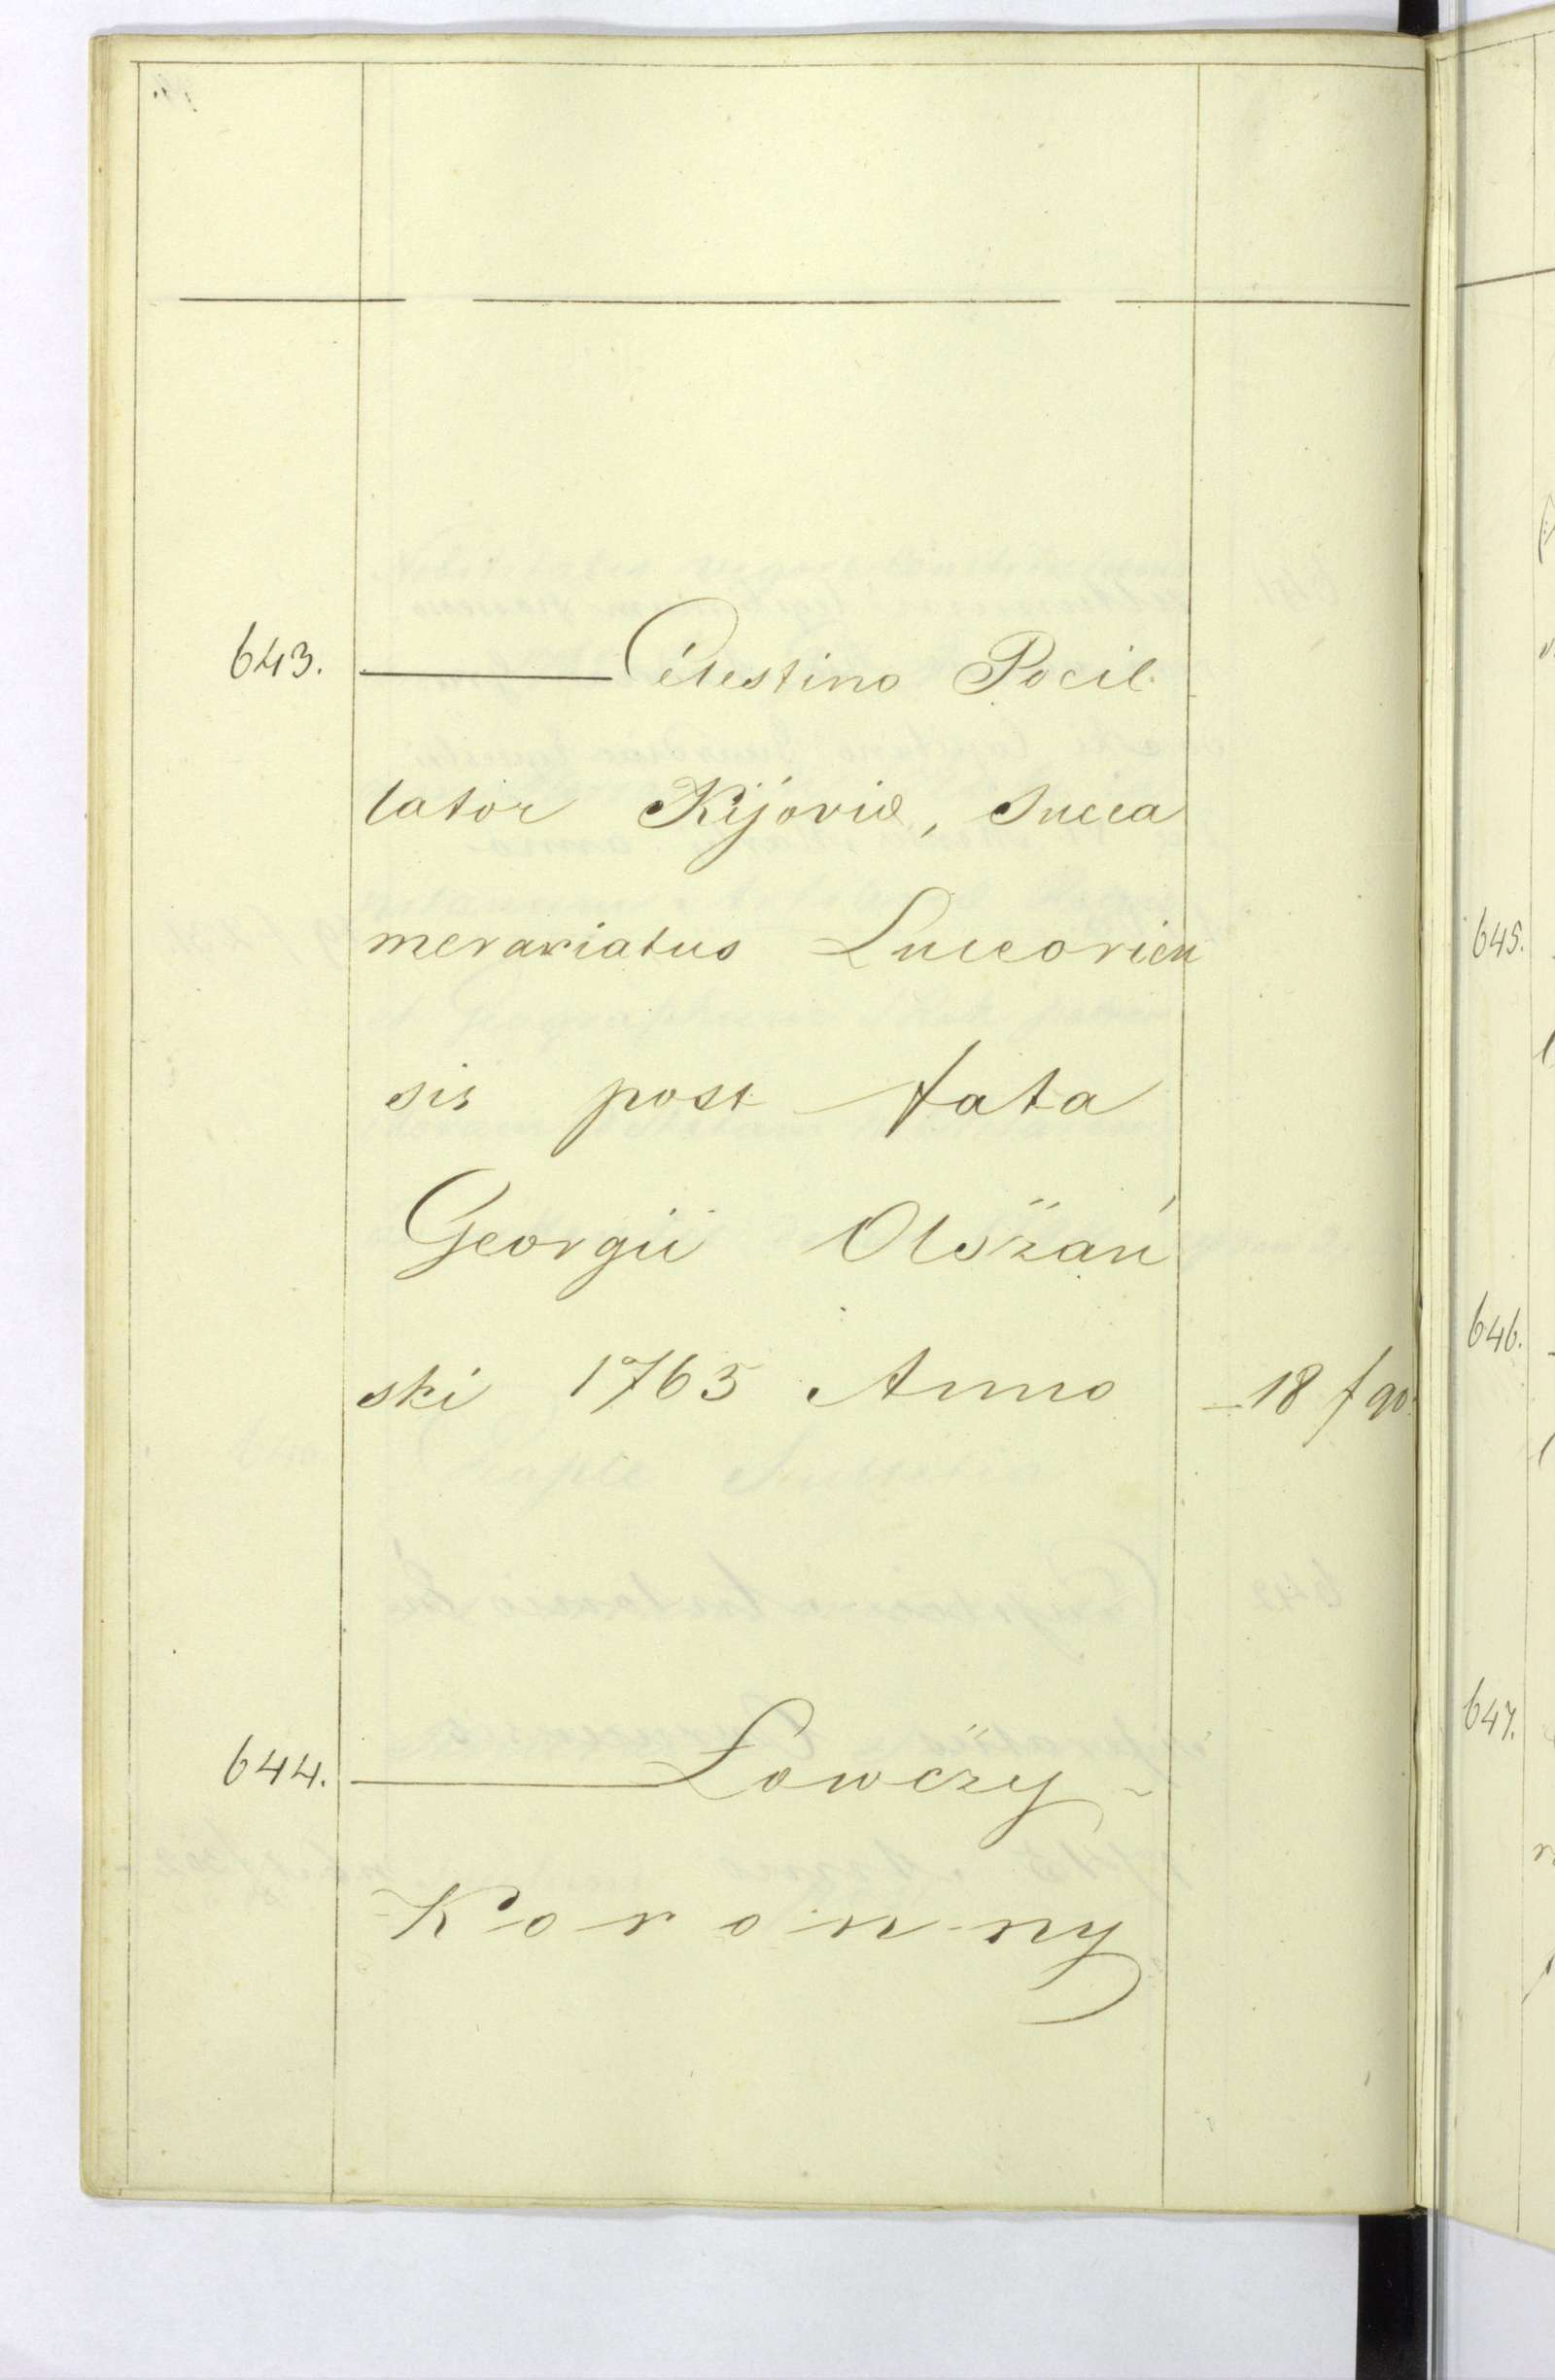 643. Celestino Pocil
lator Kijoviæ, Succa
merariatus Luceorien
sis post fata
Georgii Olszań
ski 1765 Anno 18 f 90.
644. Łowczy
Koronny
645.
646.
647.